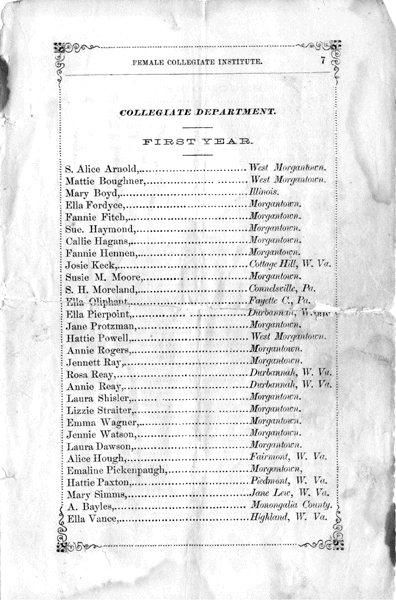 FEMALE COLLEGIATE INSTITUTE. 7
COLLEGIATE DEPARTMENT.
FIRST YEAR.
S. Alice Arnold, West Morgantown.
Mattie Boughner, West Morgantown.
Mary Boyd, Illinois.
Ella Fordyce, Morgantown.
Fannie Fitch, Morgantown.
Sue. Haymond, Morgantown.
Callie Hagans, Morgantown.
Fannie Hennen, Morgantown.
Josie Keck, Cottage Hill, W. Va.
Susie M. Moore, Morgantown.
S. H. Moreland, Conndsville, Pa.
Ella Oliphant, Fayette C., Pa.
Ella Pierpoint, Durbannah,
Jane Protzman, Morgantown.
Hattie Powell, West Morgantown.
Annie Rogers, Morgantown.
Jennett Ray, Morgantown.
Rosa Reay, Durbannah, W. Va.
Annie Reay, Durbannah, W. Va.
Laura Shisler, Morgantown.
Lizzie Straiter, Morgantown.
Emma Wagner, Morgantown.
Jennie Watson, Morgantown.
Laura Dawson, Morgantown.
Alice Hough, Fairmont, W. Va.
Emaline Pickenpaugh, Morgantown,
Hattie Paxton, Piedmont, W. Va.
Mary Simms, Jane Lew, W. Va.
A. Bayles, Monongalia County.
Ella Vance, Highland, W. Va.